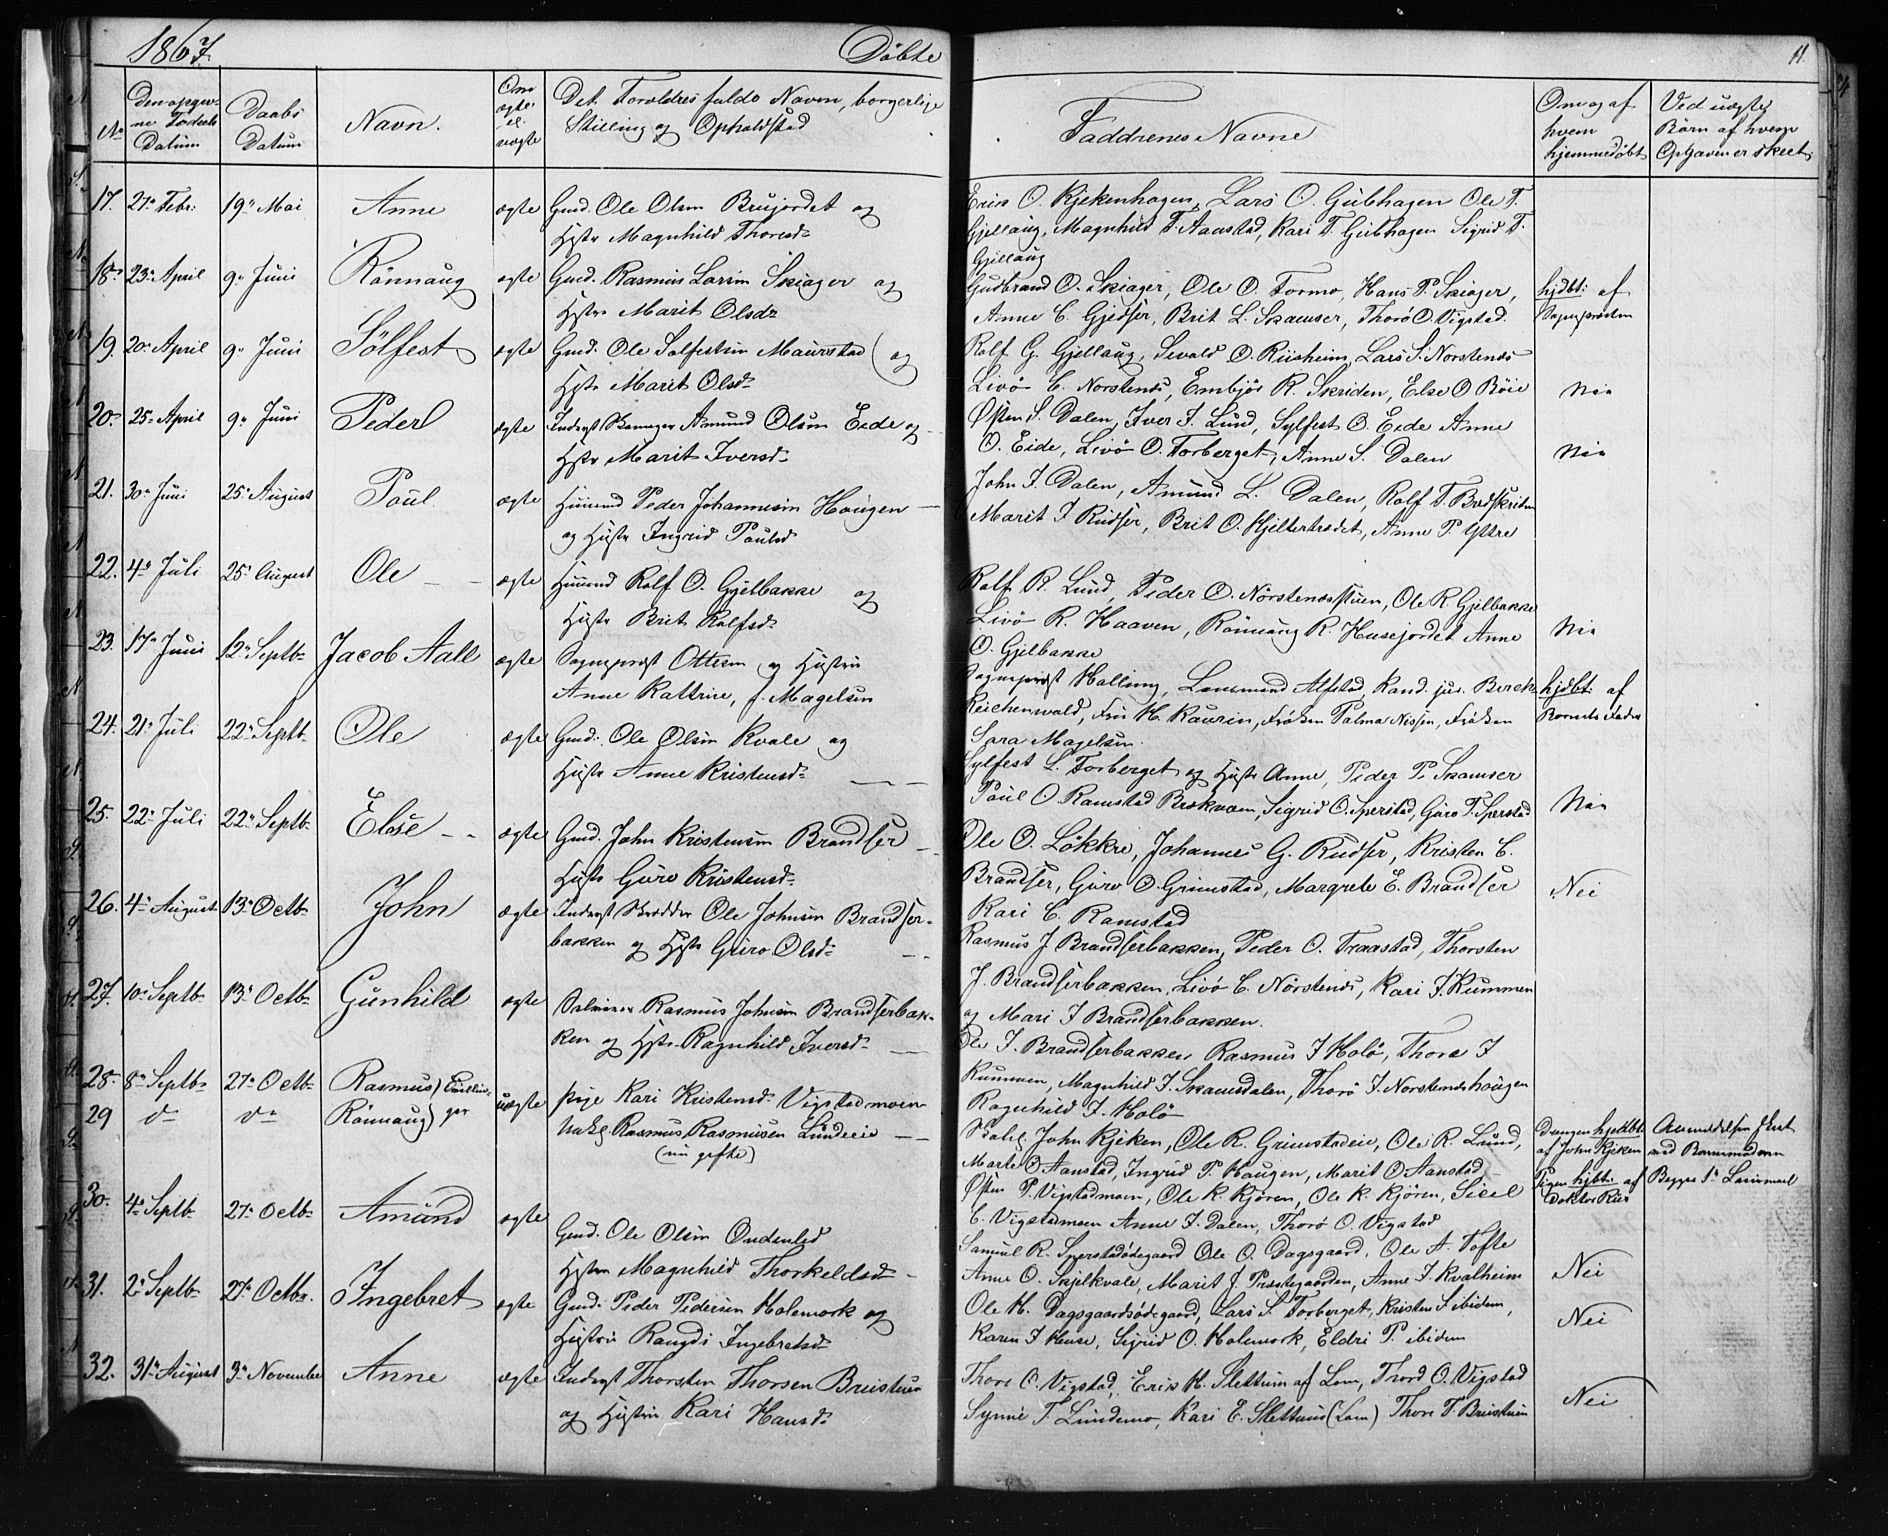 1867. Döbte 11.
No Den opgivne Födsels Datum Daabs Datum Navn. Om ægte el. uægte Det Foreldres fulde Navn, borgerlige Stilling og Opholdsted Faddrenes Navne Om og af hvem hjemmedöbt Ved uægte Börn af hvem Opgaven er skeet
17. 27de Febr: 19de Mai Anne ægte Gmd. Ole Olsen Brujordet og
Hstr Magnhild Thoresdr
Erik O. Kjekenhagen, Lars O. Gubhagen Ole T.
Gjellaug, Magnhild T. Aanstad, Kari T. Gubhagen Sigrid T.
Gjellaug
18. 23de April 9de Juni Rönnaug ægte Gmd. Rasmus Larsen Skiager og
Hstr Marit Olsdr
Gudbrand O. Skiager, Ole O. Formo, Hans P. Skiager,
Anne C. Gjedser, Brit L. Skamser, Thorö O. Vigstad.
hjdbt: af
Sognepresten
19. 20de April 9de Juni Sölfest ægte Gmd. Ole Solfestsen Maurstad og
Hstr Marit Olsdr
Rolf G. Gjellaug, Sevald O. Rusheim, Lars S. Norstenes
Livö C. Norstenes, Embjör R. Skriden, Else O. Böie
Nei
20. 25de April 9de Juni Peder ægte Inderst Amund Olsen Eide og
Hstr Marit Iversdr
Östen S. Dalen, Iver I. Lund, Sylfest O. Eide Anne
O. Eide, Livö O. Forberget, Anne S. Dalen
Nei
21. 30de Juni 25de August Poul ægte Huusmd Peder Johannesen Haugen
og Hstr Ingrid Poulsd
John I. Dalen, Amund L. Dalen, Rolf T. Brudskriden
Marit I Rudser, Brit O. Kjeltertrædet, Anne P. Ystre
22. 4de Juli 25de August Ole ægte Huusmd Rolf O. Gjelbakke og
Hstr Brit Rolfsdr
Rolf R. Lund, Peder O. Nörstenesstuen, Ole R. Gjelbakke
Livö R. Haaven, Rönnaug R. Husejordet Anne
O. Gjelbakke
Nei
23. 17de Juni 12te Septbr Jacob Aall ægte Sogneprest Ottesen og Hustru
Anne Kattrine, f. Magelsen
Sogneprest Halling, Lensmand Alfstad, Kand. jur. Berck
Reichenwald, Fru H. Kaurin, Fröken Palma Nissen, Fröken
Sara Magelsen.
hjdbt: af
Barnets Fader
24. 21de Juli 22de Septbr Ole ægte Gmd. Ole Olsen Kvale og
Hustr Anne Kristensdr
Sylfest L. Forberget og Hstr Anne, Peder P. Skamser
Poul O. Ramstad Brekvam, Sigrid O. Sperstad, Guro T. Sperstad
Nei
25. 22de Juli 22de Septbr Else ægte Gmd. John Kristensen Brandser
Hustr Guro Kristensdr
Ole O. Lökkre, Johannes G. Rudser, Kristen C.
Brandser, Guro O. Grimstad, Margrete E. Brandser
Kari C. Ramstad
Nei
26. 4de August 13de Octbr John ægte Inderst Skrædder Ole Johnsen Brandser-
bakken og Hstr Guro Olsdr
Rasmus J Brandserbakken, Peder O. Traastad, Thorsten
J. Brandserbakken, Livö C. Nörstenes, Kari I. Rummen
og Mari I Brandserbakken.
27. 10de Septbr 13de Octbr Gunhild ægte Rasmus Johnsen Brandserbak-
ken og Hstr. Ragnhild Iversdr
Ole J. Brandserbakken Rasmus I Holö, Thore I
Rummen, Magnhild I. Skamsdalen, Thorö I. Norstenshaugen
Ragnhild I. Holö
28. 8de Septbr 27de Octbr Rasmus) Tvillin-
29 do do Rönnaug) ger
uægte Pige Kari Kristensdr Vigstadmoen
Ukg Rasmus Rasmusen Lundeeie
(nu gifte)
John Kjeken, Ole R. Grimstadeie, Ole R. Lund,
Marte O Aanstad, Ingrid P. Haugen, Marit O. Aanstad
Östen P. Vigstadmoen, Ole K. Kjören, Ole K. Kjören, Sicel
C. Vigstadmoen Anne I. Dalen, Thorö O. Vigstad
Drengen hjddbt:
af John Kjeken
Pigen hjbt: af
Doktor Kur
Anmeldelsen skeet
med Barnemoderen
30. 4de Septbr 27de Octbr Amund ægte Gmd. Ole Olsen
Hstru Magnhild Thorkeldsdr
Samuel R. Sperstadödegaard Ole O. Dagsgaard, Ole A. Tofte
Anne O. Skjelkvale, Marit J. Præstegaarden, Anne I. Kvalheim
Nei
31. 2de Septbr 27de Octbr. Ingebret ægte Gmd. Peder Pedersen Holemork og
Hustru Rangdi Ingebretsdr
Ole H. Dagsgaardsödegaard, Lars S. Forberget, Kristen S ibidem,
Karen I Huse, Sigrid O. Holemork, Eldri P. ibidem
Nei
32. 31te August 3de November Anne ægte Inderst Thorsten Thorsen Breistuen
og Hustru Kari Hansdr
Thore O. Vigstad, Erik H. Slettum af Lom, Thord O. Vigstad
Synne T. Lundemo, Kari E. Slettum (Lom) Thore T. Breistuen
Nei